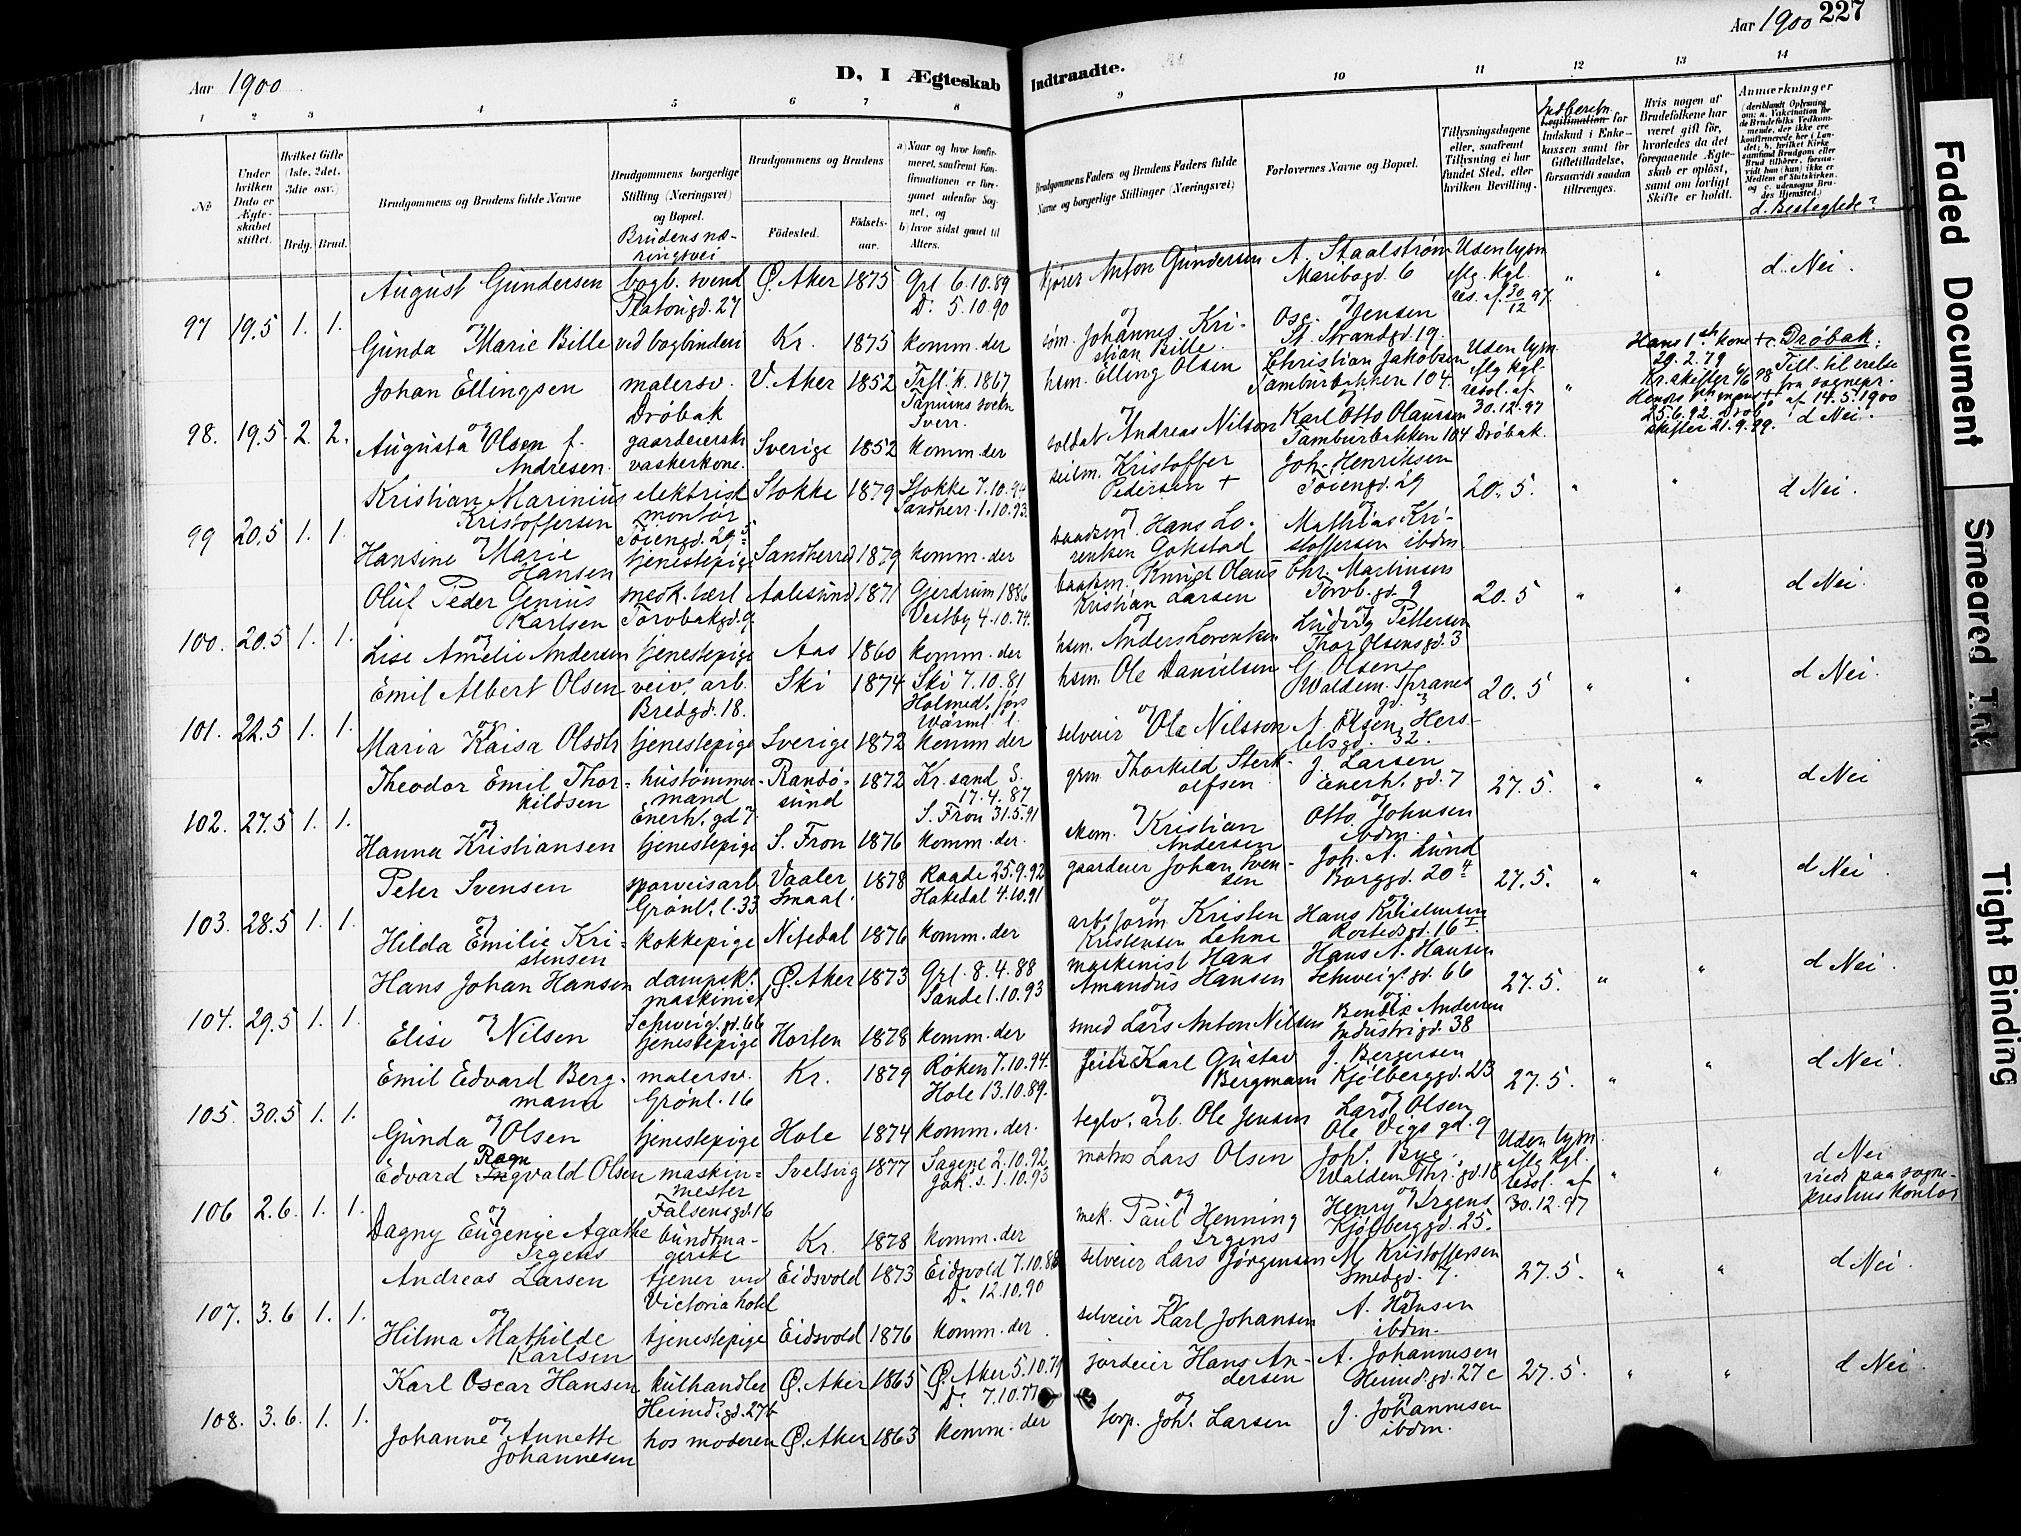 Aar 1900
D, I Ægteskab Indtraadte.
Aar 1900 227
1 2 3 4 5 6 7 8 9 10 11 12 13 14
No
Under hvilken Dato er Ægteskabet stiftet.
Hvilket Gifte (1ste, 2det, 3die osv.)
Brdg. Brud.
Brudgommens og Brudens fulde Navne
Brudgommens borgerlige Stilling (Næringsvei) og Bopæl.
Brudens næringsvei
Brudgommens og Brudens
Födested. Födselsaar.
a) Naar og hvor konfirmeret, saafremt Konfirmationen er foregaaet udenfor Sognet, og
b) hvor sidst gaaet til Alters.
Brudgommens Faders og Brudens Faders fulde Navne og borgerlige Stillinger (Næringsvei)
Forlovernes Navne og Bopæl.
Tillysningsdagene eller, saafremt Tillysning ei har fundet Sted, efter hvilken Bevilling.
Legitimation for Indskud i Enkekassen samt for Giftetilladelse, forsaavidt saadan tiltrænges.
Hvis nogen af Brudefolkene har været gift før, hvorledes da det foregaaende Ægteskab er opløst, samt om lovligt Skifte er holdt.
Anmærkninger
(deriblandt Oplysning om: a. Vakcination for de Brudefolks Vedkommende, der ikke ere konfirmerede her i Landet; b. hvilket Kirkesamfund Brudgom eller Brud tilhører, forsaavidt han (hun) ikke er Medlem af Statskirken, og c. udensogns Brudes Hjemsted.)
d. Beslegtede?
97 19.5 1. 1.
August Gundersen bogb. svend Ø. Aker 1875 Grl 6.10.89
Platousgd. 27 Do 5.10.90
kjører Anton Gundersen A. Staalstrøm Uden lysn.
Maribogd. 6 eflg. kgl. res. af 30/12 97. " " d. Nei.
og
Gunda Marie Bille ved bogbinderi Kr. 1875 komm. der
Johannes Kristian Bille. Osc. Jensen
St. Strandgd. 19.
98. 19.5. 2. 2.
Johan Ellingsen malersv. V. Aker 1852 Trfl. k. 1867
Drøbak Tanums sockn Sverr.
hsm. Elling Olsen Christian Jakobsen Uden lysn.
Tamburbakken 104. eflg kgl. resol. af 30.12.97 Drøbak.
Hans 1ste kone + 29.2.79
c. Drøbak:
d Nei.
og
Augusta Olsen f. Andresen. gaardeierske vaskerkone. Sverige 1852 komm. der
soldat Andreas Nilson Karl Otto Olaussen
Tamburbakken 104
99 20.5 1. 1.
Kristian Marinius Kristoffersen elektrisk montør Stokke 1879 Stokke 7.10.94
Töiengd. 29 Sandherr. 1.10.93.
seilm. Kristoffer Pedersen + Joh. Henriksen
Töiengd. 29 20.5. " " d Nei.
og
Hansine Marie Hansen tjenestepige Sandherred 1879 komm. der
baadsm. Hans Lorentsen Gokstad Mathias Kristoffersen ibdm.
100. 20.5 1. 1.
Oluf Peder Genius Karlsen Aalesund 1871 Gjerdrum 1886
Torvbakgd. 9. Vestby 4.10.74.
Knud Olaus Kristian Larsen Chr. Martinsen
Torvb. gd. 9 20.5 " " d Nei.
og
Lise Amelie Andersen tjenestepige Aas 1860 komm. der
hsm. Anders Lorentsen Ludvig Pettersen
Thor Olsensgd. 3
101. 22.5 1. 1.
Emil Albert Olsen veiv. arb. Ski 1874 Ski 7.10.81
Bredgd. 18.
hsm. Ole Danielsen G. Olsen
Waldem. Thranes gd. 3 20.5 " " d Nei.
og
Maria Kaisa Olsdtr tjenestepige Sverige 1872 komm der
selveier Ole Nilsson N. Olsen, Herslebsgd. 32.
102. 27.5 1. 1.
Theodor Emil Thorkildsen hustömmermand Randösund 1872 Kr. sand S. 17.4.87
Enerh. gd 7. S. Fron 31.5.91
grm. Thorkild Sterkolfsen J. Larsen
Enerh. gd. 7 27.5. " " d Nei
og
Hanna Kristiansen tjenestepige S. Fron 1876 komm. der.
Kristian Andersen Otto Johnsen
ibdm.
103. 28.5 1. 1.
Peter Svensen sporveisarb. Vaaler Smaal. 1878 Raade 25.9.92
Grönl. l. 33 Hakedal 4.10.91
gaardeier Johan Svensen Joh. A. Lund
Borggd. 20 II 27.5. " " d Nei
og
Hilda Emilie Kristensen kokkepige Nitedal 1876 komm. der
arbsform Kristen Kristensen Lehne Hans Kristensen
16 I
104. 29.5 1. 1.
Hans Johan Hansen dampsk. maskinist Ø. Aker 1873 Grl. 8.4.88
Schweig. gd. 66 Sande 1.10.93
maskinist Hans Amandus Hansen Hans A. Hansen
Schweig. gd. 66 27.5. " " d Nei.
og
Elise Nilsen tjenestepige Horten 1878 komm. der
smed Lars Anton Nilsen Bendix Andersen
Industrigd. 38
105. 30.5 1. 1.
Emil Edvard Bergmann malersv. Kr. 1879 Røken 7.10.94.
Grönl. 16 Hole 13.10.89.
Karl Gustav Bergmann J. Bergersen
Kjölberggd. 23 27.5. " " d Nei.
og
Gunda Olsen tjenestepige Hole 1874 komm. der.
teglv. arb. Ole Jensen Lars Olsen
Ole Vigs gd. 9
106 2.6. 1. 1.
Edvard Ragnvald Olsen maskinmester Svelvig 1877 Sagene 2.10.92
Falsensgd. 16 Jak. s. 1.10.93
matros Lars Olsen Joh. Bye
Waldem. Thr. gd. 18 Uden lysn. eflg kgl. resol. af 30.12.97 " " d Nei
viede paa sogneprestens kontor
og
Dagny Eugenie Agathe Irgens buntmagerske Kr. 1878 komm. der
mek. Paul Henning Irgens Henry Irgens
Kjölberggd. 25.
107. 3.6 1. 1.
Andreas Larsen tjener ved Victoria hotel Eidsvold 1873 Eidsvold 7.10.88
Do 12.10.90
selveier Lars Jørgensen M. Kristoffersen
Smedgd. 7. 27.5. " " d Nei.
og
Hilma Mathilde Karlsen tjenestepige Eidsvold 1876 komm. der.
selveier Karl Johansen A. Hansen
ibdm.
108. 3.6. 1. 1.
Karl Oscar Hansen kulhandler Ø. Aker 1865 Ø. Aker 5.10.79
Heimd. gd. 27b Do 7.10.77
jordeier Hans Andersen A. Johannesen
Heimd. gd. 27c 27.5. " " d Nei.
og
Johanne Annette Johannesen hos moderen Ø. Aker 1863 komm. der
Joh. Larsen J. Johannesen
ibdm.
Faded Document
Smeared Ink
Tight Binding